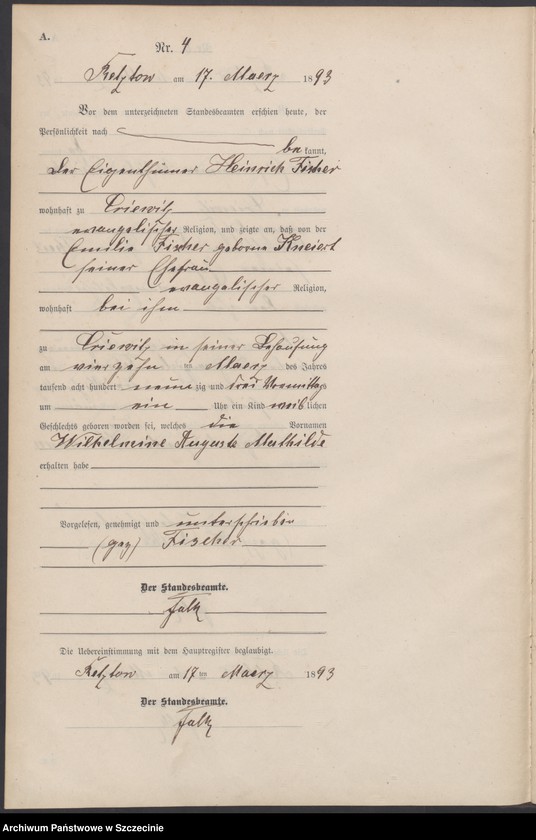 A.
Nr. 4
Retzow am 17. Maerz 1893
Vor dem unterzeichneten Standesbeamten erschien heute, der
Persönlichkeit nach
be kannt,
der Eigenthümer Heinrich Fischer
wohnhaft zu Criewitz
evangelischer Religion, und zeigte an, daß von der
Emilie Fischer geborne Kneiert
seiner Ehefrau
evangelischer Religion,
wohnhaft bei ihm
zu Criewitz in seiner Behausung
am vierzehn ten Maerz des Jahres
tausend acht hundert neun zig und drei Vormittags
um ein Uhr ein Kind weib lichen
Geschlechts geboren worden sei, welches die Vornamen
Wilhelmine Auguste Mathilde
erhalten habe
Vorgelesen, genehmigt und unterschrieben
(gez) Fischer
Der Standesbeamte.
Falk
Die Uebereinstimmung mit dem Hauptregister beglaubigt.
Retzow am 17 ten Maerz 1893
Der Standesbeamte.
Falk
Archiwum Państwowe w Szczecinie